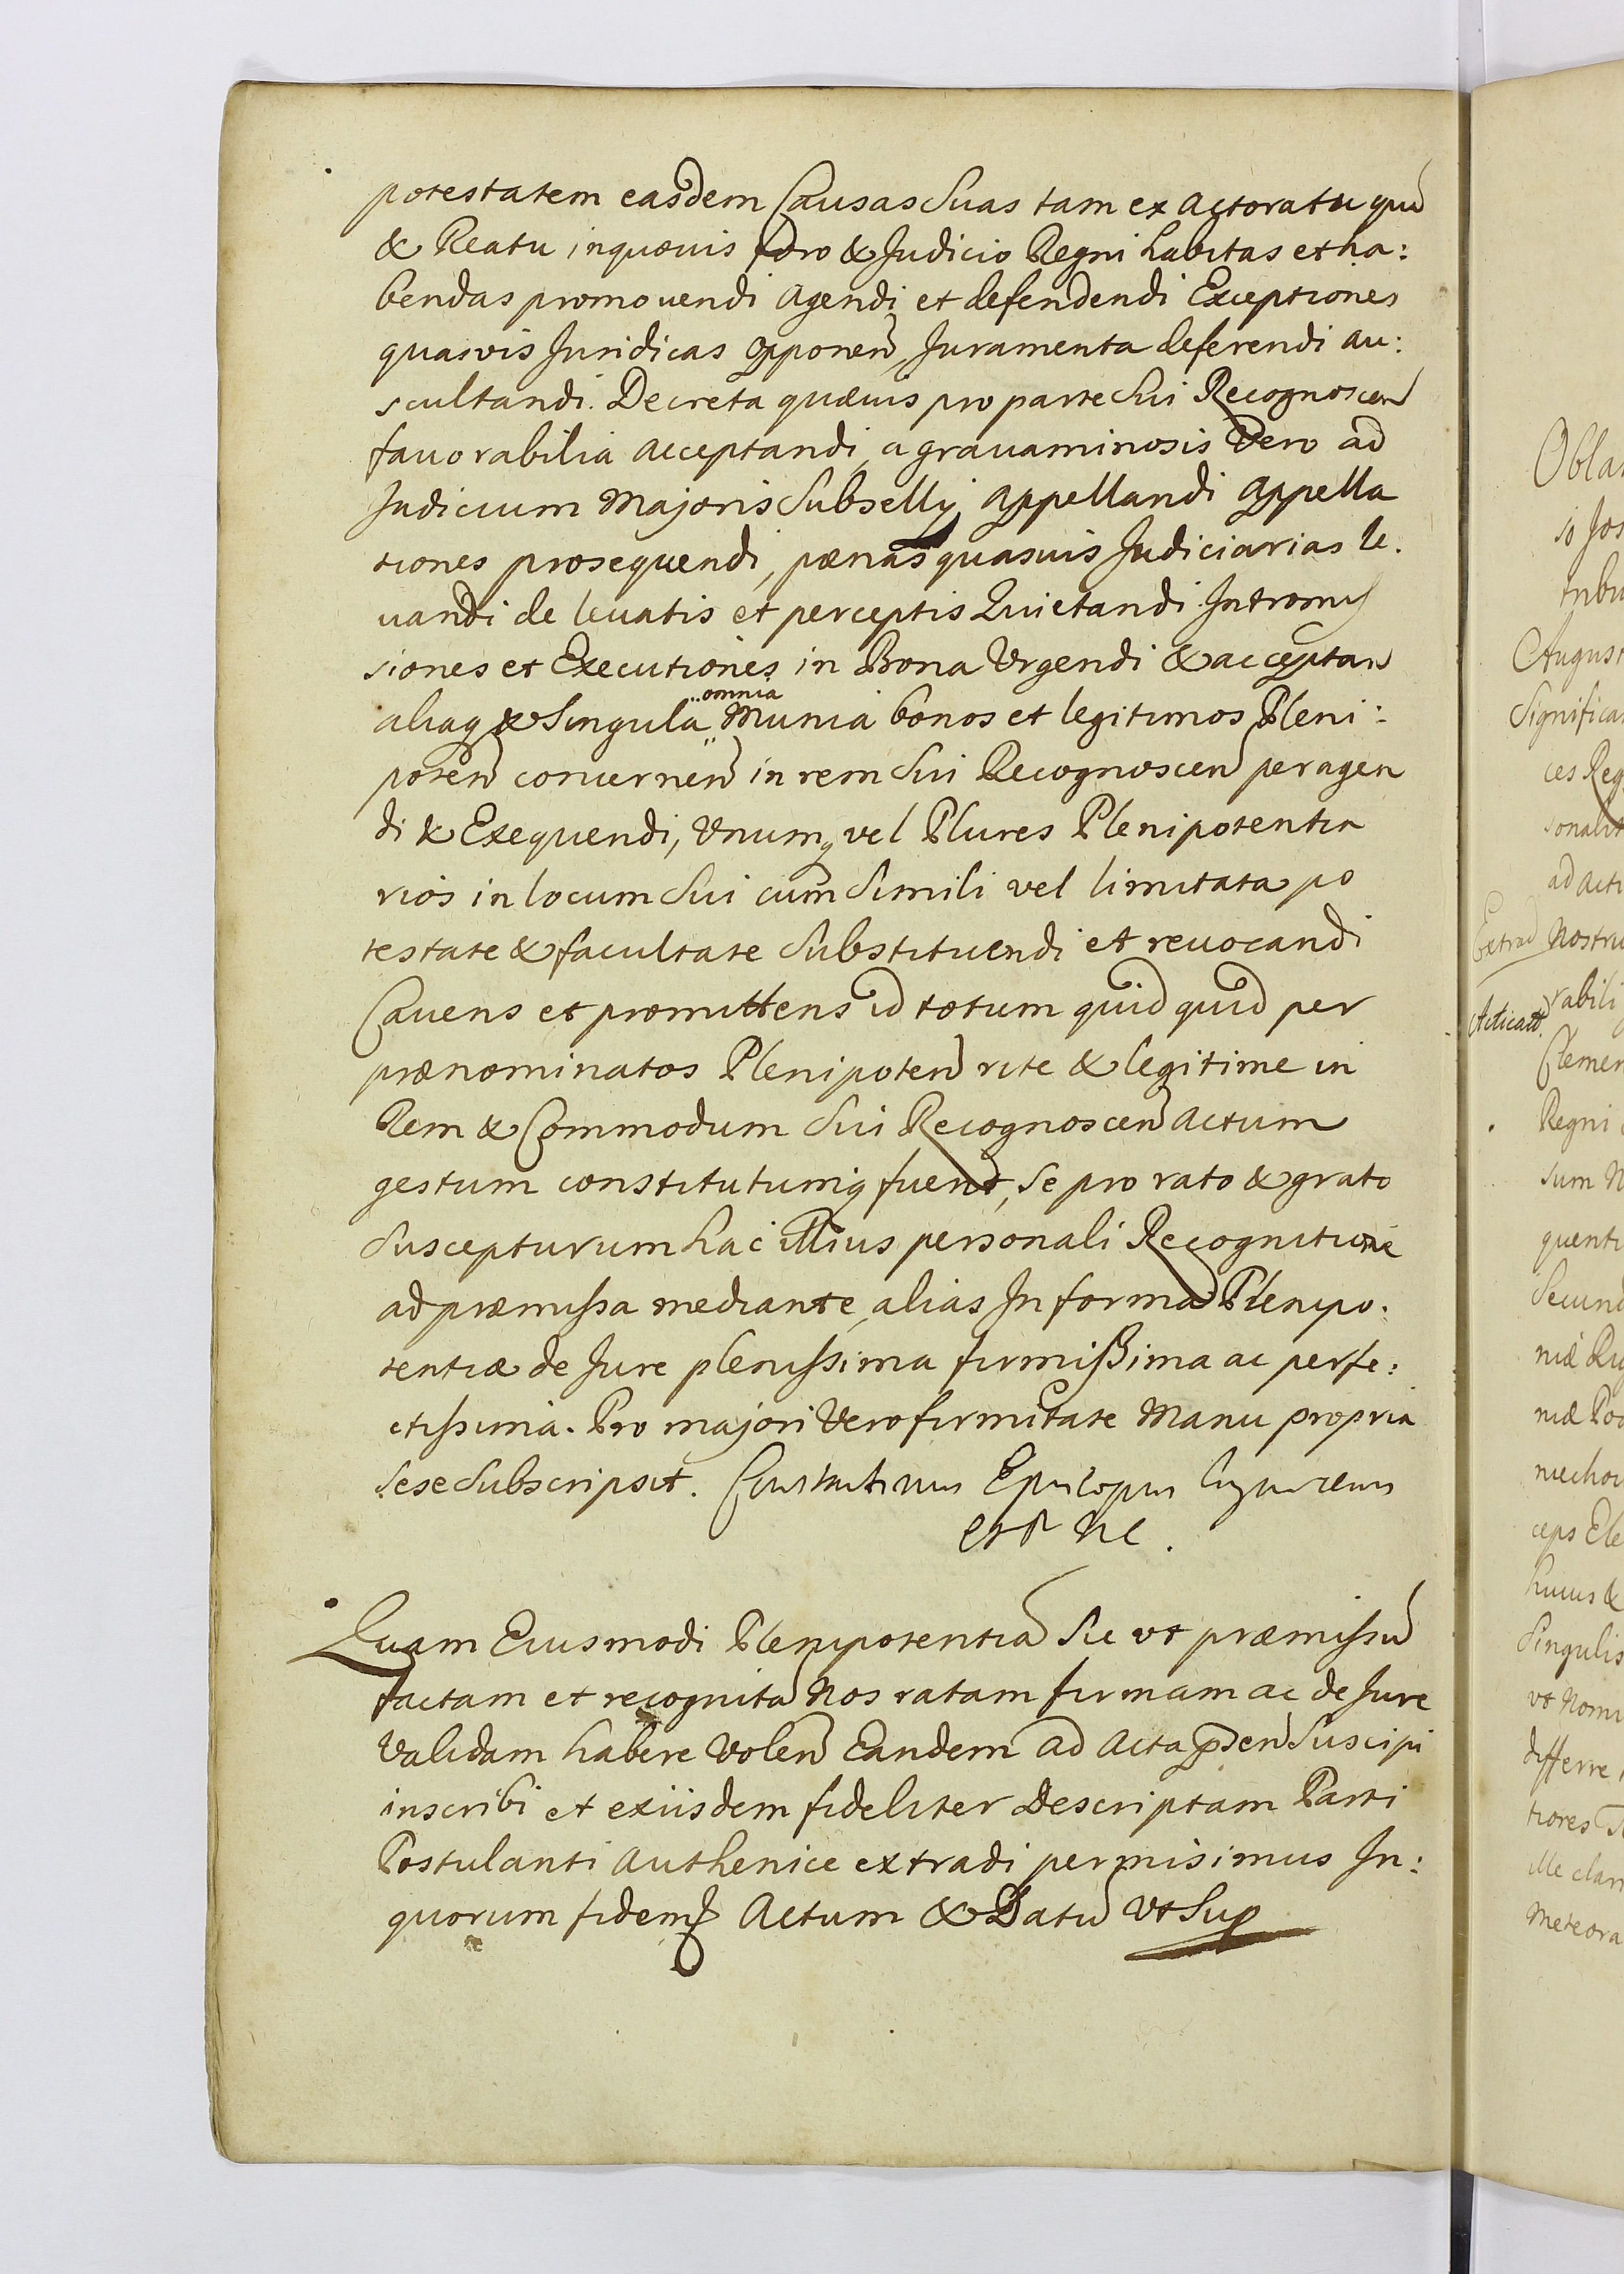 potestatem easdem Causas Suas tam ex Actoratu quã
& Reatu inquovis foro & Judicio Regni habitas et ha:
bendas promouendi Agendi et defendendi Exceptiones
quasvis Juridicas opponen̄, Juramenta deferendi au:
scultandi. Decreta quæuis pro parte Sui Recognoscen̄
fauorabilia Acceptandi, a grauaminosis Vero ad
Judicium Majoris Subselly Appellandi Appella
tiones prosequendi, pænas quasuis Judiciarias le:
uandi de leuatis et perceptis Quietandi Intromis
siones et Executiones in Bona Vrgendi & acceptan̄
aliaq & Singula omnia Munia bonos et legitimos Pleni:
poten̄ concernen̄ in rem Sui Recognoscen̄ peragen
di & Exequendi, Vnumq vel Plures Plenipotentia
rios in locum Sui cum Simili vel limitata po
testate & facultate Substituendi et reuocandi
Cavens et promittens id totum quid quid per
prænominatos Plenipoten̄ rite & legitime in
Rem & Commodum Sui Recognoscen̄ Actum
gestum constitutumq fuerit, Se pro rato & grato
Suscepturum hac illius personali Recognitione
ad præmissa mediante, alias In forma Plenipo:
tentiæ de Jure plenissima firmissima ac perfe:
ctissima. Pro majori Vero firmitate Manu propria
sese Subscripsit. Episcopus
Quam Eiusmodi Plenipotentiã Sic vt præmissũ
factam et recognitã Nos ratam firmam ac de Jure
Validam habere Volen̄ Eandem ad Acta p̃sen̄ Suscipi
inscribi et exiisdem fideliter Descriptam Parti
Postulanti Authenice extradi permisimus In:
quorum fidem Actum & Datũ Vt Sup
Obla
Jos
tribu
August
Significa
ces Reg
sonalit
ad Acti
Extrad Nostru
Acticatt. rabili
Clemen
Regni
sum N
quenti
Secund
niæ Ru
niæ Pod
niechov
ceps Ele
huius &
Singulis
vt Nomi
differre
tiores
ille clar
Meteora